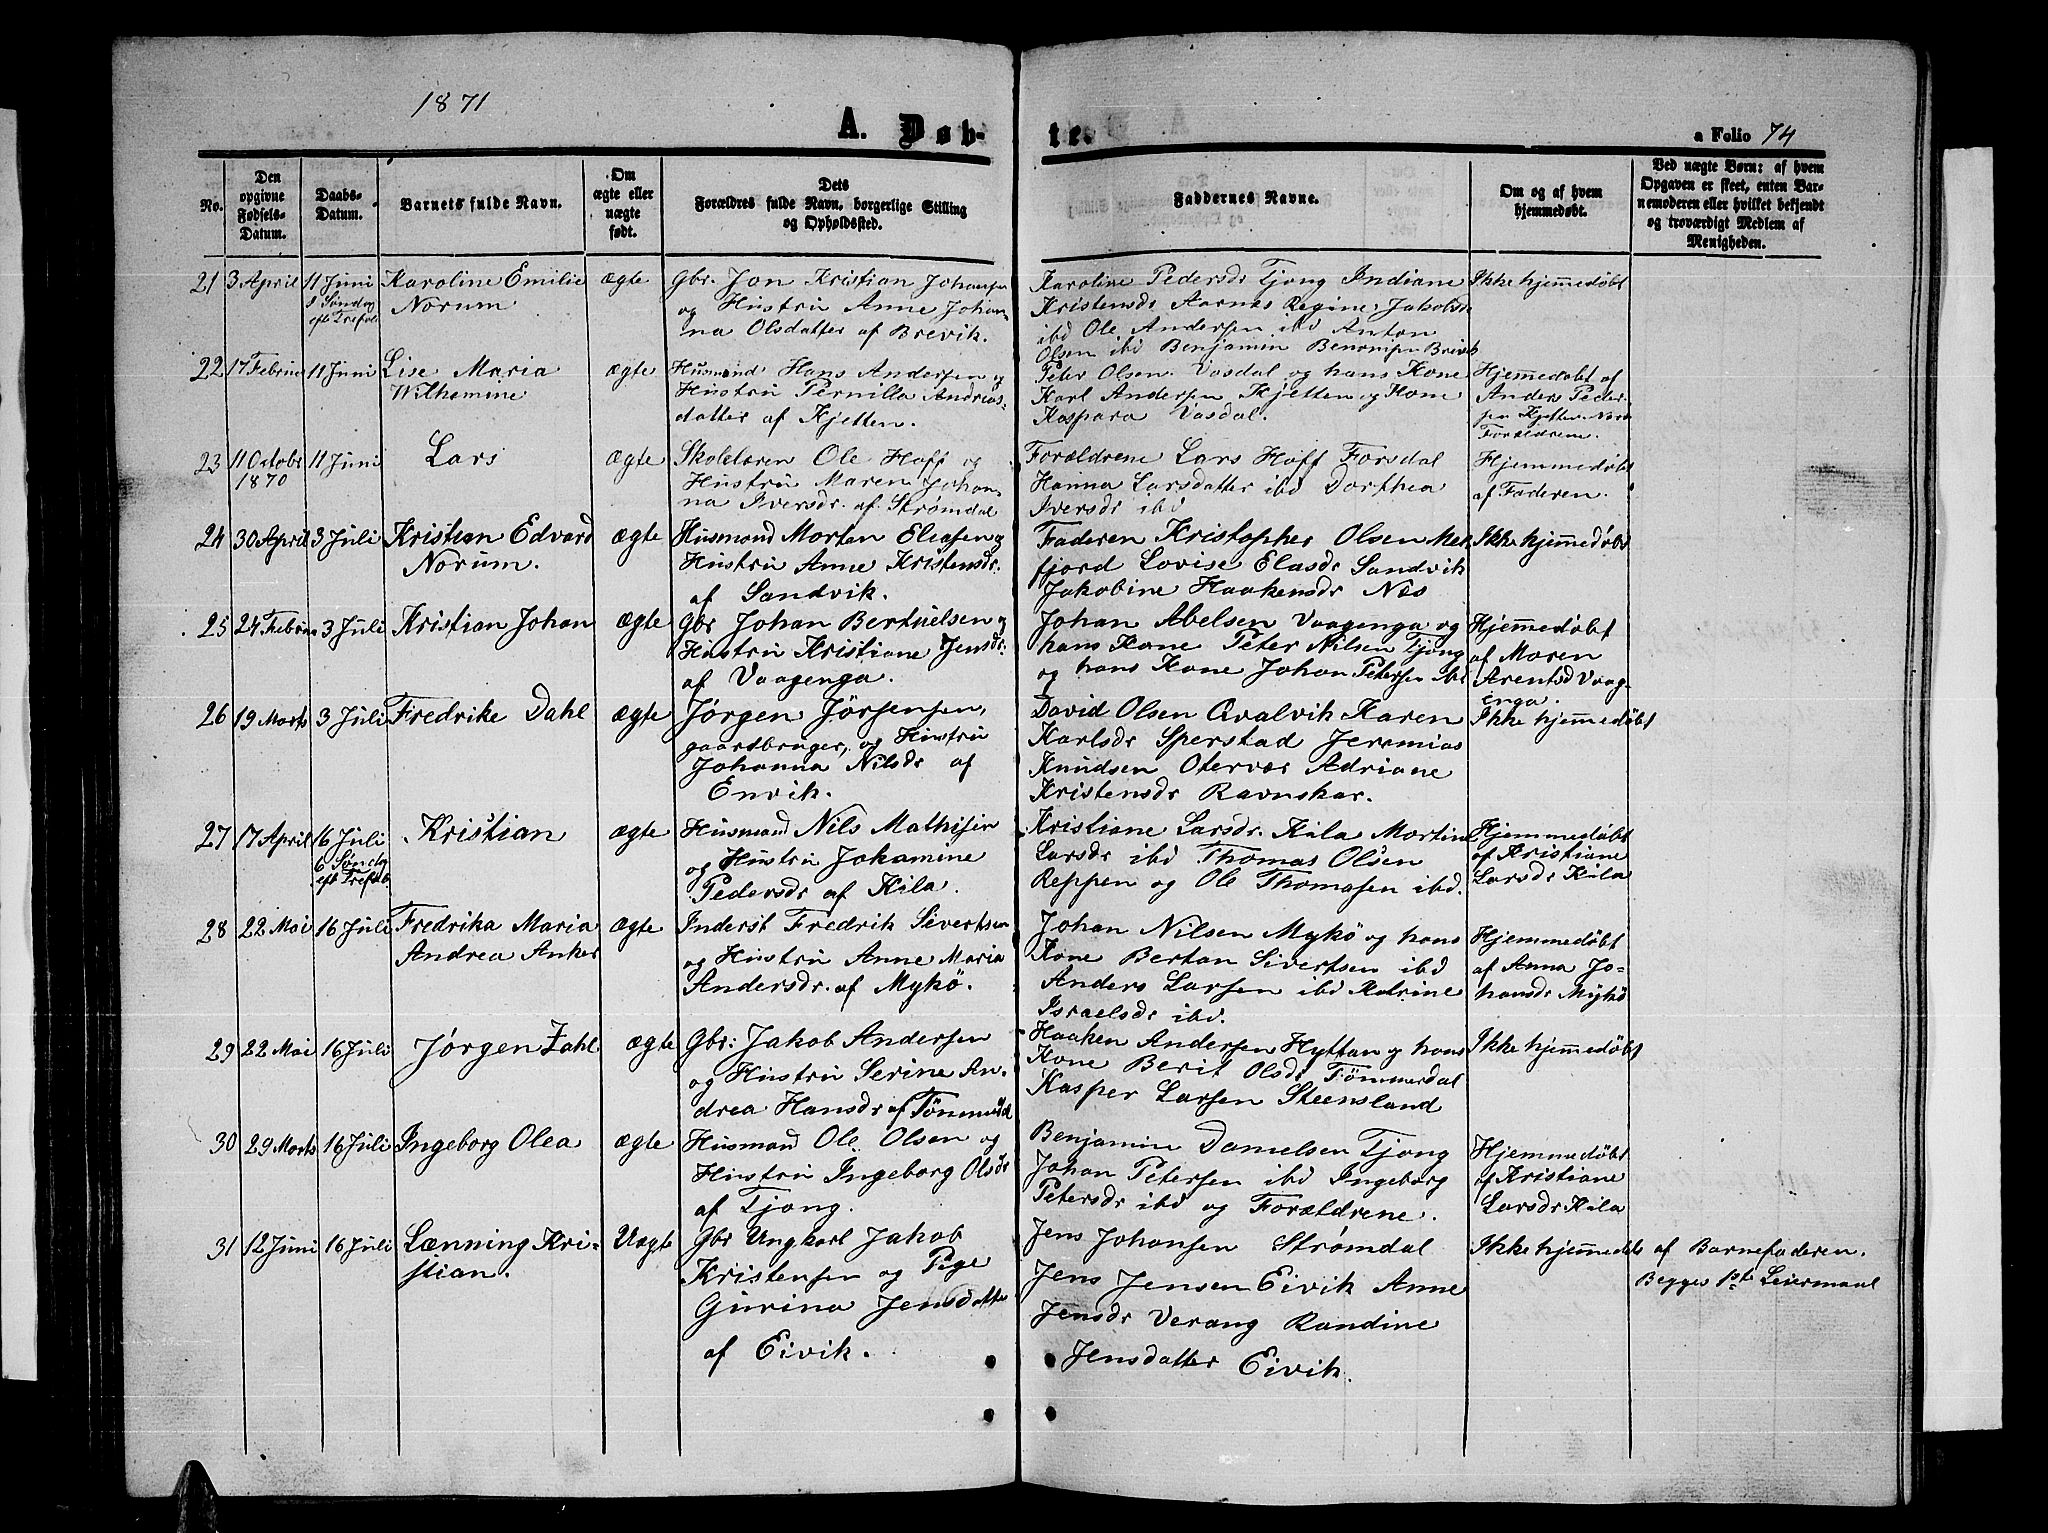 1871
A. Døb-
te.
a Folio 74
No.
Den opgivne Fødsels-Datum.
Daabs-Datum.
Barnets fulde Navn.
Om ægte eller uægte født.
Dets Forældres fulde Navn, borgerlige Stilling og Opholdssted.
Faddernes Navne.
Om og af hvem hjemmedøbt.
Ved uægte Børn: af hvem Opgaven er skeet, enten Barnemoderen eller hvilket bekjendt og troværdigt Medlem af Menigheden.
21 3 April 11 Juni Karoline Emilie ægte Gbr. Jon Kristian Johansen Karoline Pedersdr Tjong Indiane Ikke hjemmedøbt
1 Søndag Norum og Hustru Anne Johan- Kristensdr Aarnes Regine Jakobsdr
eft Trefold na Olsdatter af Brevik. ibd Ole Andersen ibd Anton
Olsen ibd Benjamin Brevik
22 17 Februar 11 Juni Lise Maria ægte Husmand Hans Andersen og Peter Olsen Vasdal og hans Kone Hjemmedøbt af
Wilhemine Hustru Pernilla Andreas- Karl Andersen Kjetten og Kone Anders Peder-
datter af Kjetten. Kaspara Vasdal. sen Kjetten. Nærv
Forældrene.
23 11 Octobr 11 Juni Lars ægte Skolelæren Ole Hoff og Forældrene Lars Hoff Forsdal Hjemmedøbt
1870 Hustru Maren Johan- Hanna Larsdatter ibd Dorthea af Faderen.
na Iversdr. af Strømdal Iversdr ibd
24 30 April 3 Juli Kristian Edvard ægte Husmand Morten Eliasen og Faderen Kristopher Olsen Mel Ikke hjemmedøbt
Norum. Hustru Anne Kristensdr. fjord Lovise Elasdr Sandvik
af Sandvik. Jakobine Haakensdr Næs
25 24 Februar 3 Juli Kristian Johan ægte Gbr Johan Bertuelsen og Johan Abelsen Vaagenga og Hjemmedøbt
Hustru Kristiane Jensdr. hans Kone Peter Nilsen Tjong af Maren
af Vaagenga. og hans Kone Johan Petersen ibd Arentsd Vaag-
enga.
26 19 Marts 3 Juli Fredrike Dahl ægte Jørgen Jørgensen, David Olsen Qvalvik Karen Ikke hjemmedøbt
gaardbruger, og Hustru Karlsdr Sperstad Jeremias
Johanna Nilsdr af Knudsen Otervær Adriane
Envik. Kristensdr Ravnskar.
27 17 April 16 Juli Kristian ægte Husmand Nils Mathisen Kristiane Larsdr. Kila Martine Hjemmedøbt
6 Søndag og Hustru Johamine Larsdr ibd Thomas Olsen af Kristiane
eft Trefold Pedersdr af Kila. Reppen og Ole Thomasen ibd. Larsdr Kila
28 22 Mai 16 Juli Fredrika Maria ægte Inderst Fredrik Sivertsen Johan Nilsen Mykö og hans Hjemmedöbt
Andrea Anker og Hustru Anne Maria Kone Bertan Sivertsen ibd af Anna Jo-
Andersdr. af Mykö. Anders Larsen ibd Katrine hansdr Mykö
Israelsdr ibd.
29 22 Mai 16 Juli Jörgen Zahl ægte Gbr: Jakob Andersen Haaken Andersen Hyttan og hans Ikke hjemmedöbt
og Hustru Serine An- Kone Berit Olsdr Tömmerdal
drea Hansdr af Tömmerdal Kasper Larsen Steensland
30 29 Marts 16 Juli Ingeborg Olea ægte Husmand Ole Olsen og Benjamin Danielsen Tjong Hjemmedöbt
Hustru Ingeborg Olsdr Johan Petersen ibd Ingeborg af Kristiane
af Tjong. Petersdr ibd og Forældrene. Larsdr Kila
31 12 Juni 16 Juli Lænning Kri- Uægte Gbr Ungkarl Jakob Jens Johansen Strømdal Ikke hjemmedöbt af Barnefaderen.
stian. Kristensen og Pige Jens Jensen Eivik Anne Begges 1ste Leiermaal
Gurina Jensdatter Jensdr Verang Randine
af Eivik. Jensdatter Eivik.